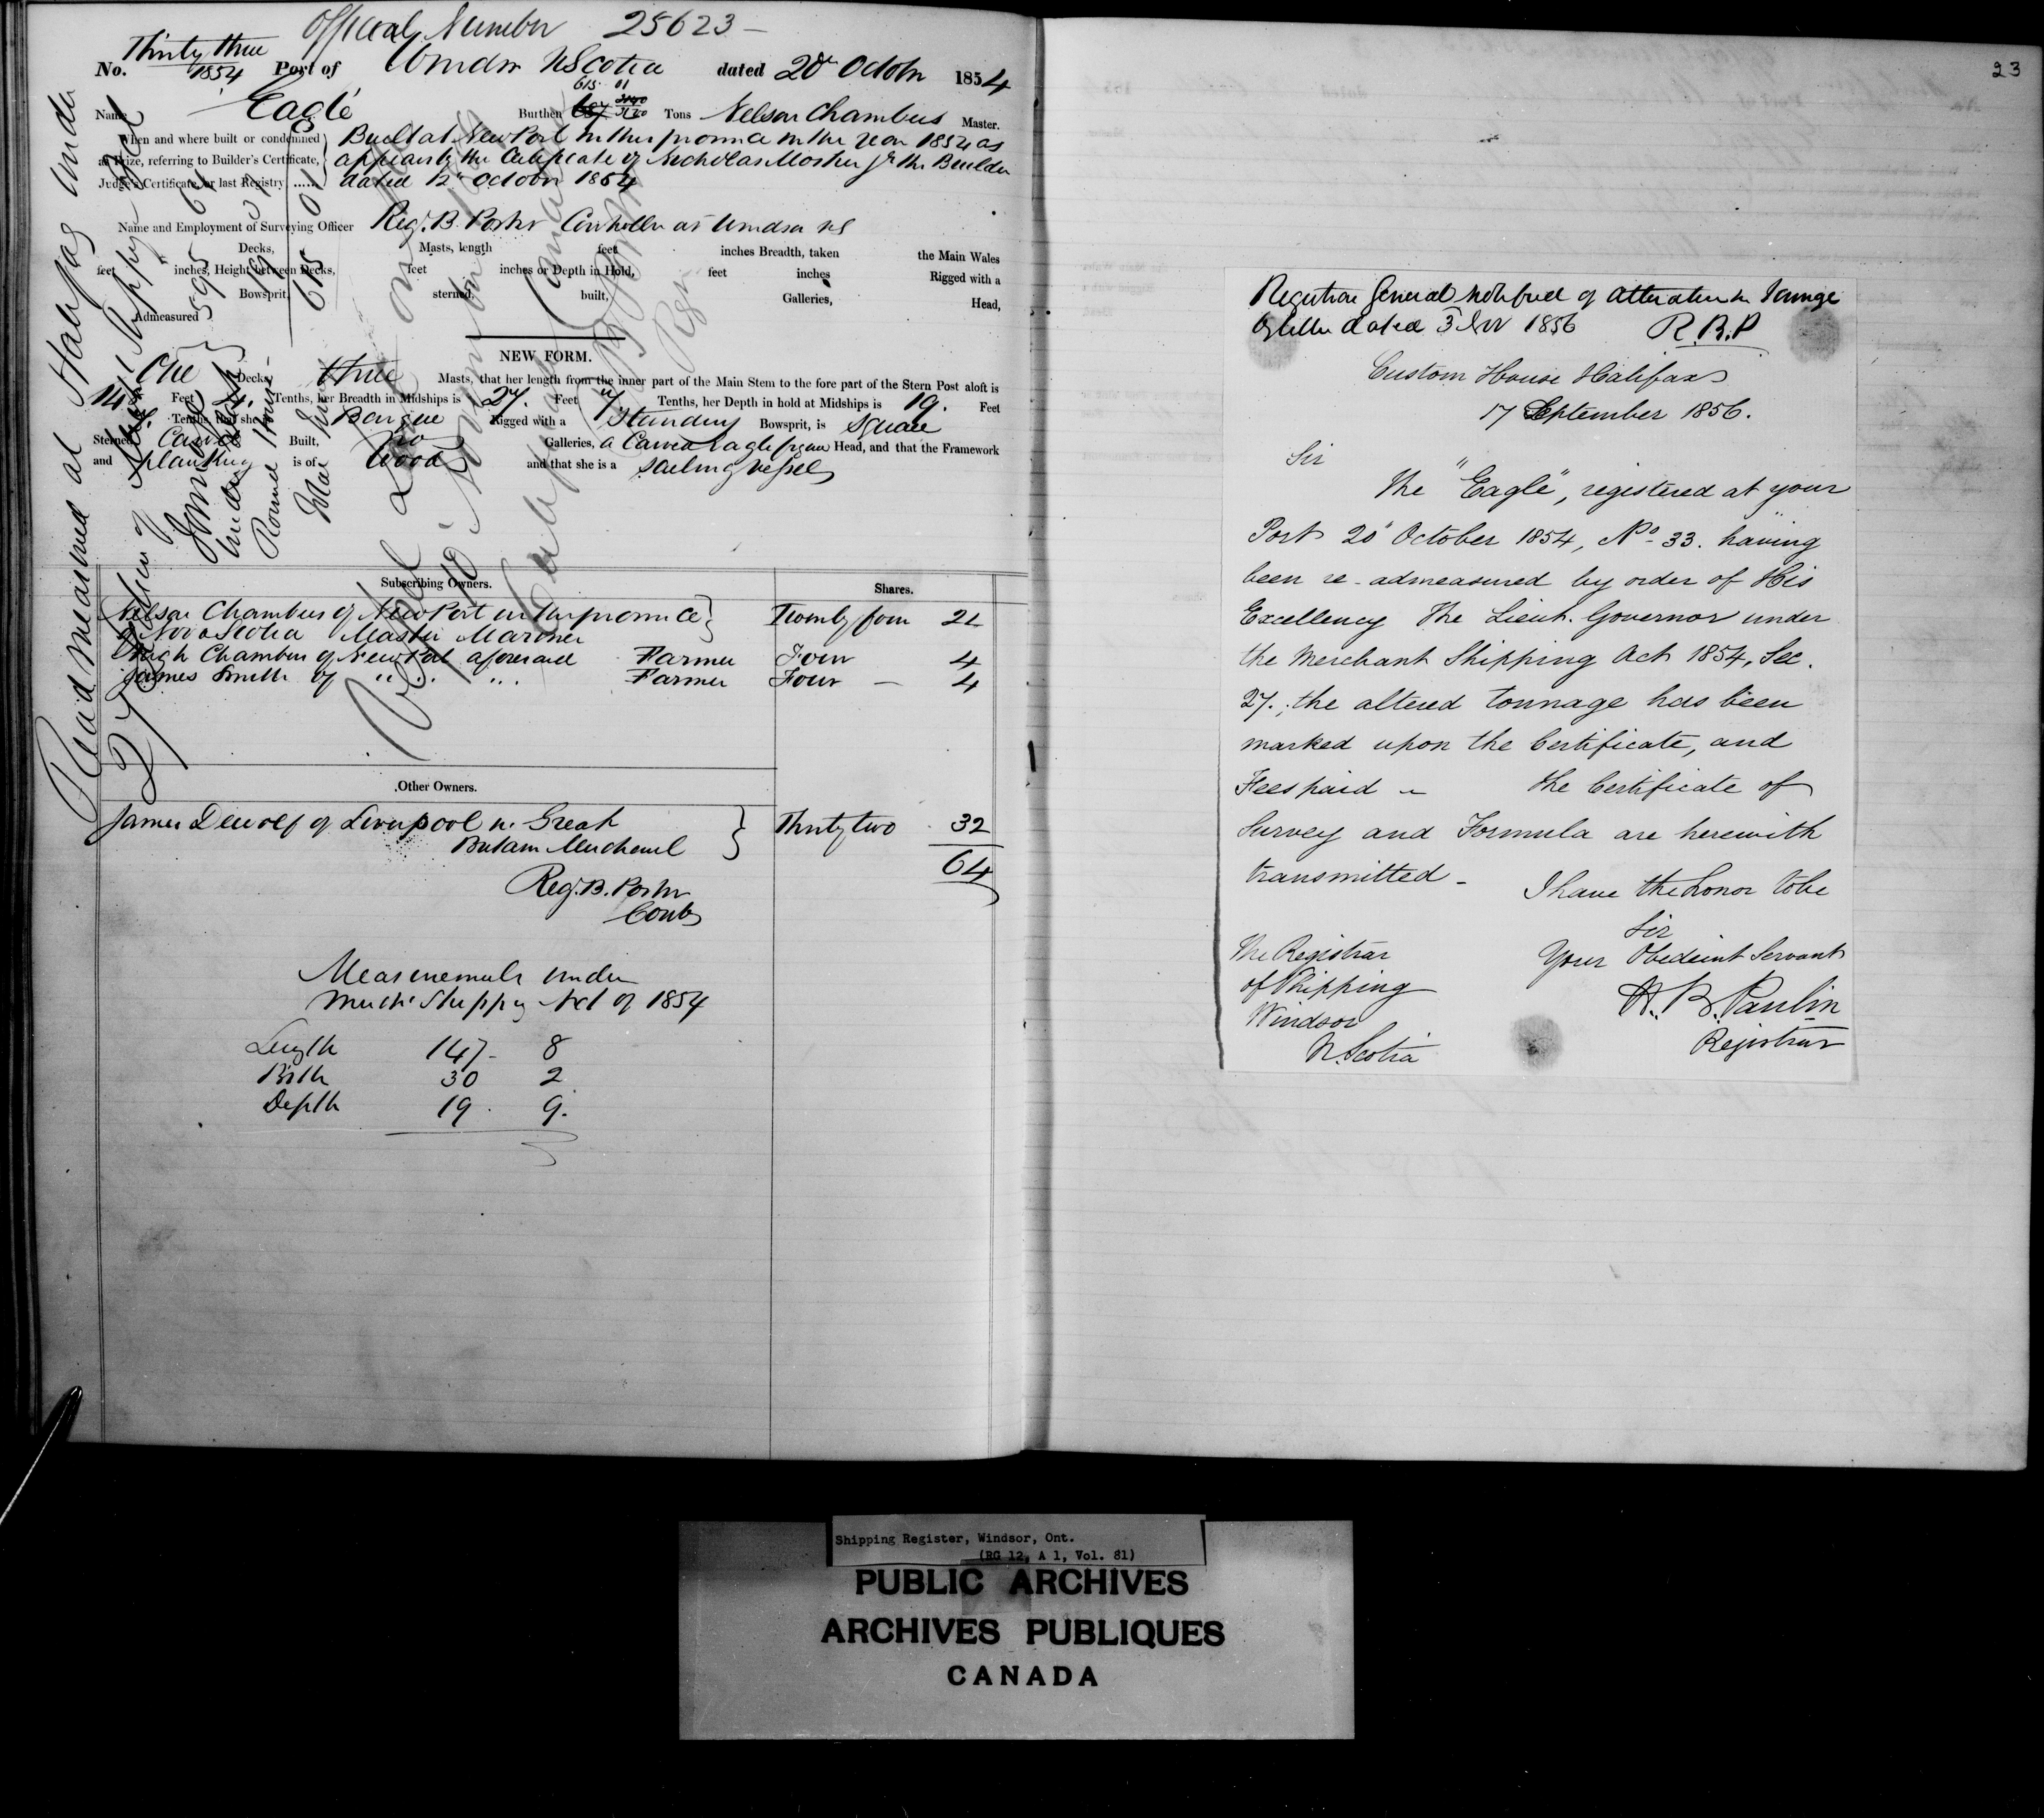 Official Number 25623 —
No. Thirty three 1854 Port of Windsor NScotia dated 20th October 1854
615 01
Name Eagle Burthen Tons Nelson Chambers Master.
When and where built or condemned Built at NewPort in this province in the Year 1854 as
as Prize, referring to Builder's Certificate, appears by the Certificate of Nicholas Mosher Jr the Builder
Judge's Certificate, or last Registry ...... dated 12th October 1854
Name and Employment of Surveying Officer Reg. B. Porter Controller at Windsor NS
Decks, Masts, length feet inches Breadth, taken the Main Wales
feet inches, Height between Decks, feet inches or Depth in Hold, feet inches Rigged with a
Bowsprit, sterned, built, Galleries, Head,
Admeasured
NEW FORM.
One Decks three Masts, that her length from the inner part of the Main Stem to the fore part of the Stern Post aloft is
Feet Tenths, her Breadth in Midships is 27. Feet 7 Tenths, her Depth in hold at Midships is 19. Feet
Tenths, that she is Barque Rigged with a Standing Bowsprit, is Square
Sterned Carvel Built, no Galleries, a Carved Eagle figure Head, and that the Framework
and planking is of Wood and that she is a sailing vessel
Read measured at Halifax under
Subscribing Owners. Shares.
Nelson Chambers of NewPort in this province
of Nova Scotia Master Mariner Twenty four 24
Hugh Chambers of NewPort aforesaid Farmer Four 4
James Smith of " " Farmer Four — 4
Other Owners.
James Dewolf of Liverpool in Great
Britain Merchant Thirty two 32
64
Reg. B. Porter
Contr
Measurements under
Mercht Shipping Act of 1854
Length 147 - 8
Brth 30 2
Depth 19 . 9.
23
Registrar General notified of alteration in Tonnage
by letter dated 3 Nov 1856 R.B.P
Custom House Halifax
17 September 1856.
Sir
The "Eagle", registered at your
Port 20" October 1854, No. 33. having
been re-admeasured by order of His
Excellency The Lieut. Governor under
the Merchant Shipping Act 1854, Sec.
27.; the altered tonnage has been
marked upon the Certificate, and
Fees paid — The Certificate of
Survey and Formula are herewith
transmitted -
I have the honor to be
Sir
Your Obedeint Servant
H. B. Paulin
Registrar
The Registrar
of Shipping
Windsor
N. Scotia
Shipping Register, Windsor, Ont.
(RG 12, A 1, Vol. 81)
PUBLIC ARCHIVES
ARCHIVES PUBLIQUES
CANADA